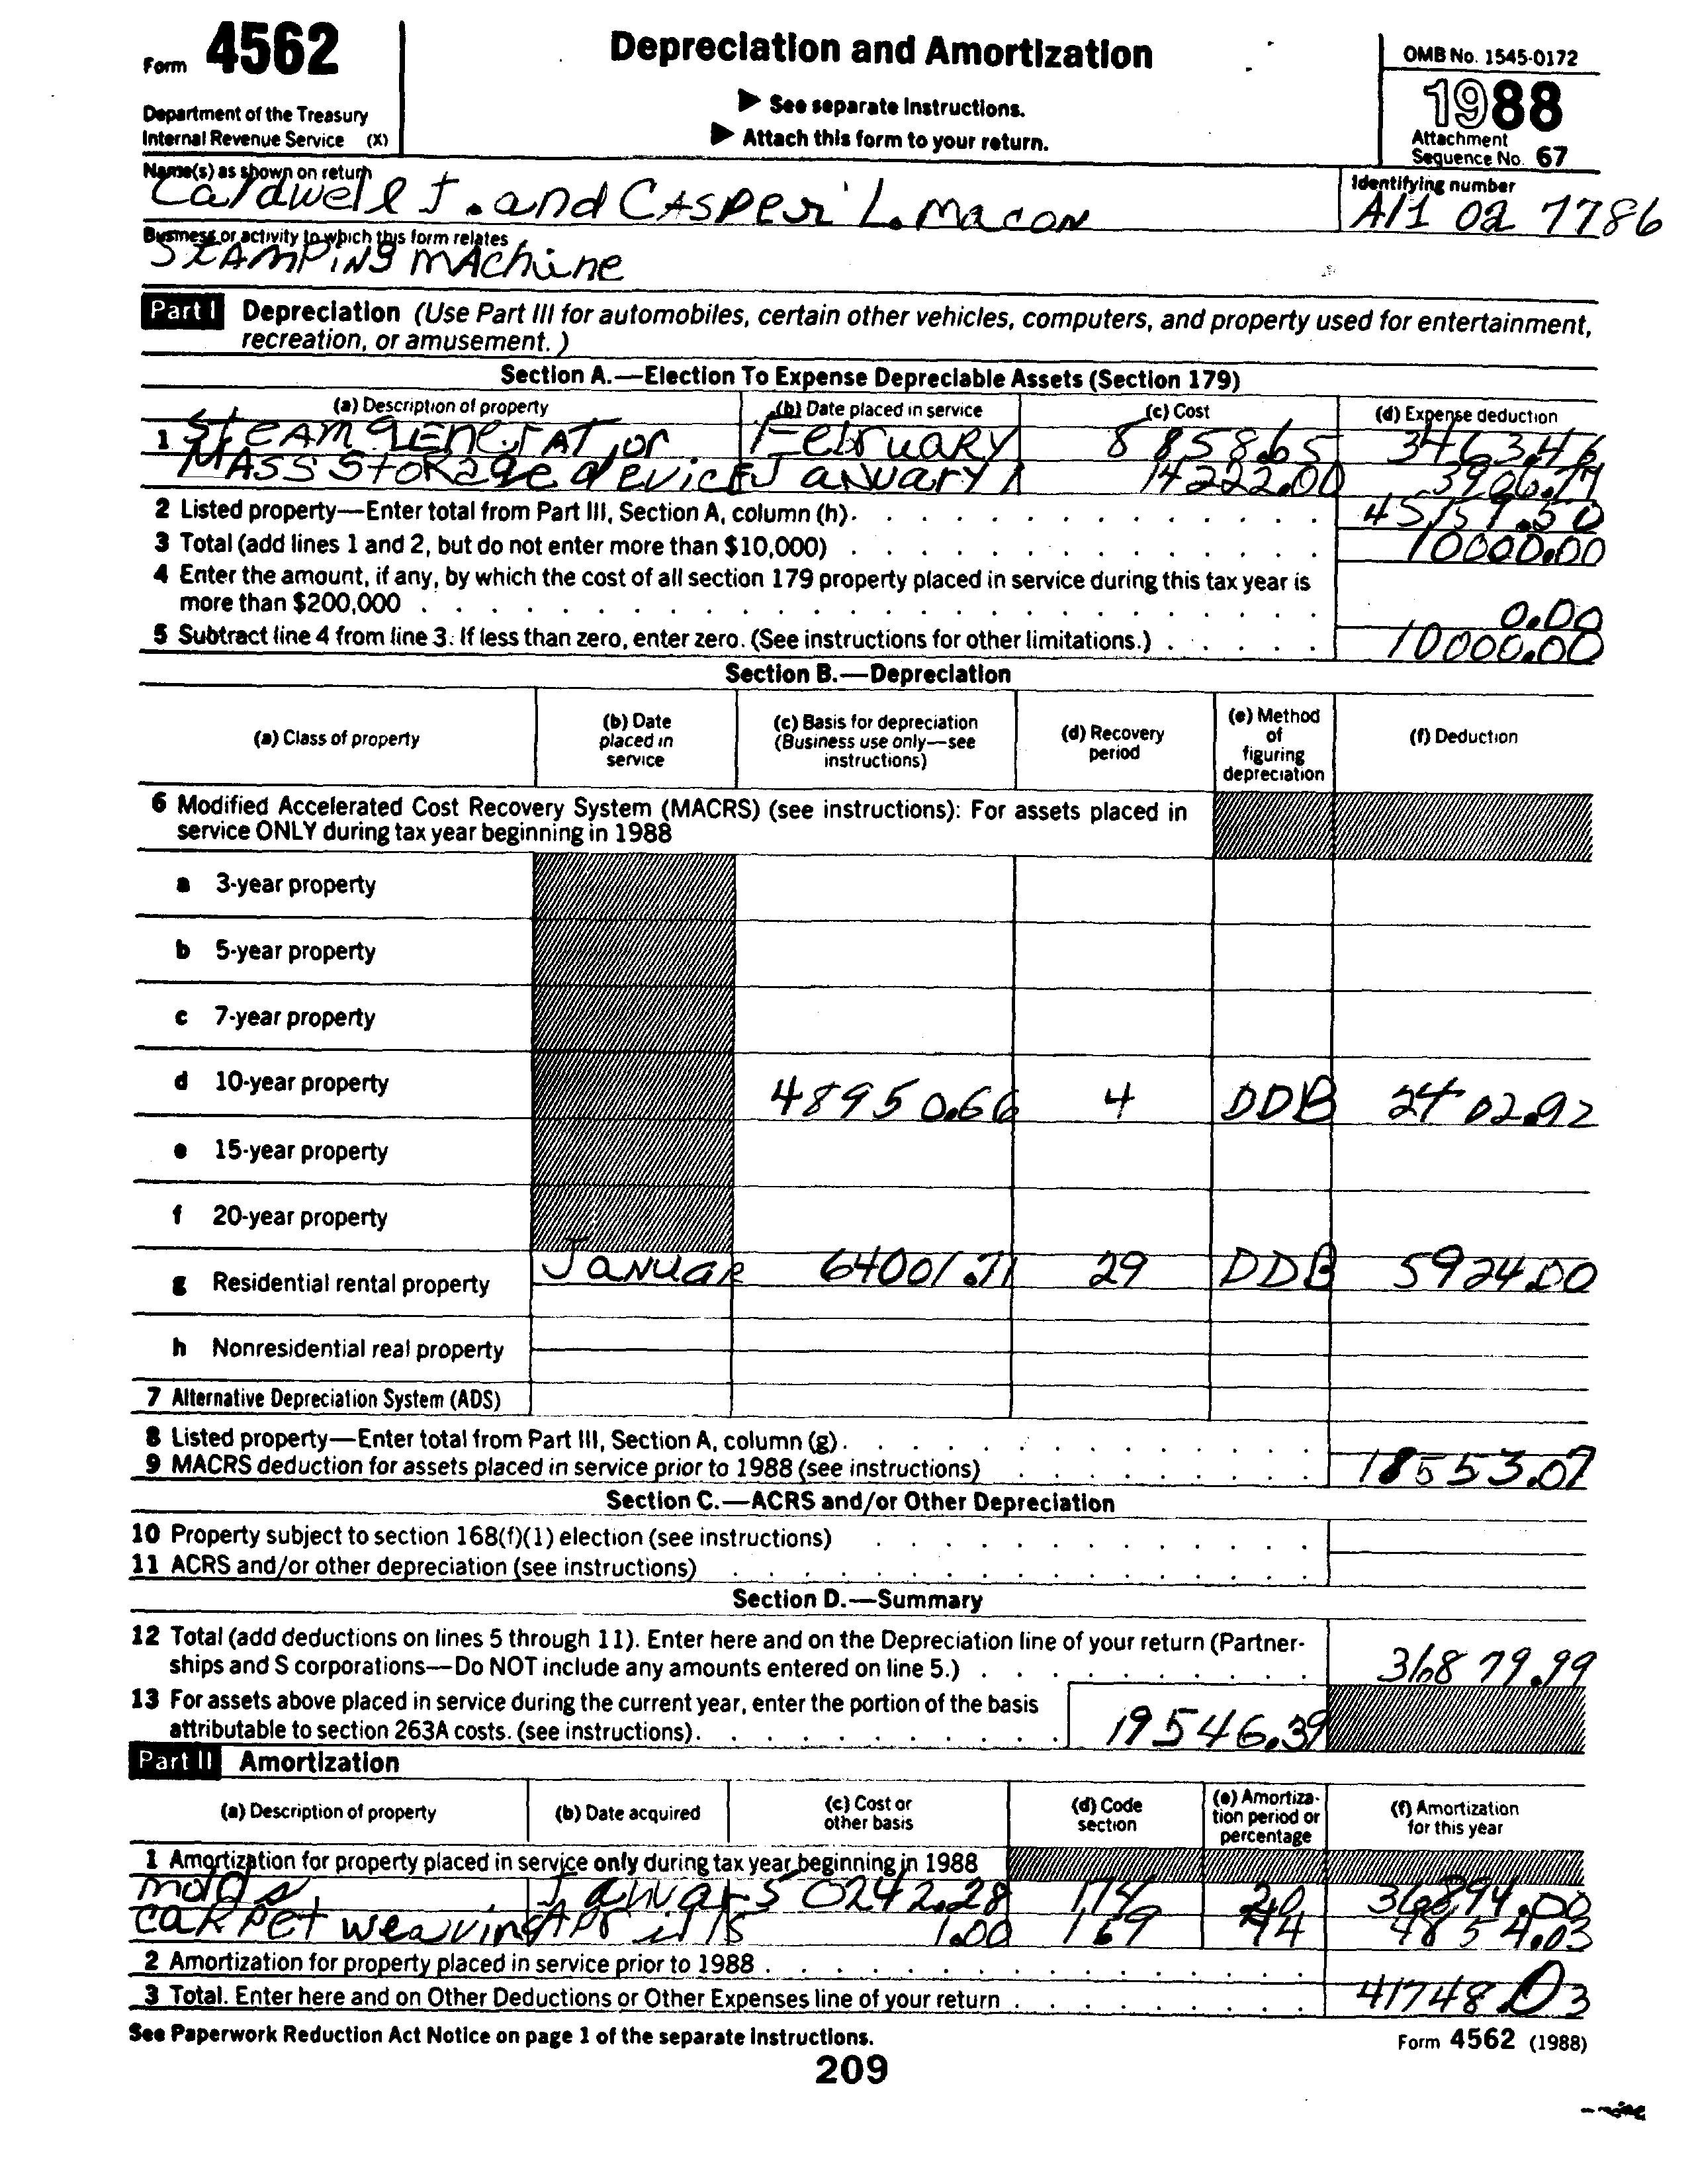 Form 4562
Depreciation and Amortization
OMB No. 1545-0172
1988
Department of the Treasury
Internal Revenue Service (X)
▶ See separate Instructions.
▶ Attach this form to your return.
Attachment
Sequence No. 67
Name(s) as shown on return
Identifying number
Caldwell J. and CASPER L. MACON
A11 02 7786
Business or activity to which this form relates
STAMPING MAchine
Part I Depreciation (Use Part III for automobiles, certain other vehicles, computers, and property used for entertainment,
recreation, or amusement.)
Section A.—Election To Expense Depreciable Assets (Section 179)
(a) Description of property (b) Date placed in service (c) Cost (d) Expense deduction
1 STEAM GENERATor February 8 858.65 3463.46
MASS STORage device January 14222.00 3906.77
2 Listed property—Enter total from Part III, Section A, column (h). 45159.50
3 Total (add lines 1 and 2, but do not enter more than $10,000) 10000.00
4 Enter the amount, if any, by which the cost of all section 179 property placed in service during this tax year is
more than $200,000 0.00
5 Subtract line 4 from line 3. If less than zero, enter zero. (See instructions for other limitations.) 10000.00
Section B.—Depreciation
(a) Class of property
(b) Date
placed in
service
(c) Basis for depreciation
(Business use only—see
instructions)
(d) Recovery
period
(e) Method
of
figuring
depreciation
(f) Deduction
6 Modified Accelerated Cost Recovery System (MACRS) (see instructions): For assets placed in
service ONLY during tax year beginning in 1988
a 3-year property
b 5-year property
c 7-year property
d 10-year property 48950.66 4 DDB 2402.92
e 15-year property
f 20-year property
g Residential rental property JANUAR 64001.71 29 DDB 5924.00
h Nonresidential real property
7 Alternative Depreciation System (ADS)
8 Listed property—Enter total from Part III, Section A, column (g).
9 MACRS deduction for assets placed in service prior to 1988 (see instructions) 18553.07
Section C.—ACRS and/or Other Depreciation
10 Property subject to section 168(f)(1) election (see instructions)
11 ACRS and/or other depreciation (see instructions)
Section D.—Summary
12 Total (add deductions on lines 5 through 11). Enter here and on the Depreciation line of your return (Partner-
ships and S corporations—Do NOT include any amounts entered on line 5.) 36879.99
13 For assets above placed in service during the current year, enter the portion of the basis
attributable to section 263A costs. (see instructions). 19546.39
Part II Amortization
(a) Description of property
(b) Date acquired
(c) Cost or
other basis
(d) Code
section
(e) Amortiza-
tion period or
percentage
(f) Amortization
for this year
1 Amortization for property placed in service only during tax year beginning in 1988
Januar 50242.28 174 20 36894.00
CARPET weaving April 15 1.00 169 44 4854.03
2 Amortization for property placed in service prior to 1988
3 Total. Enter here and on Other Deductions or Other Expenses line of your return 41748.03
See Paperwork Reduction Act Notice on page 1 of the separate instructions.
Form 4562 (1988)
209